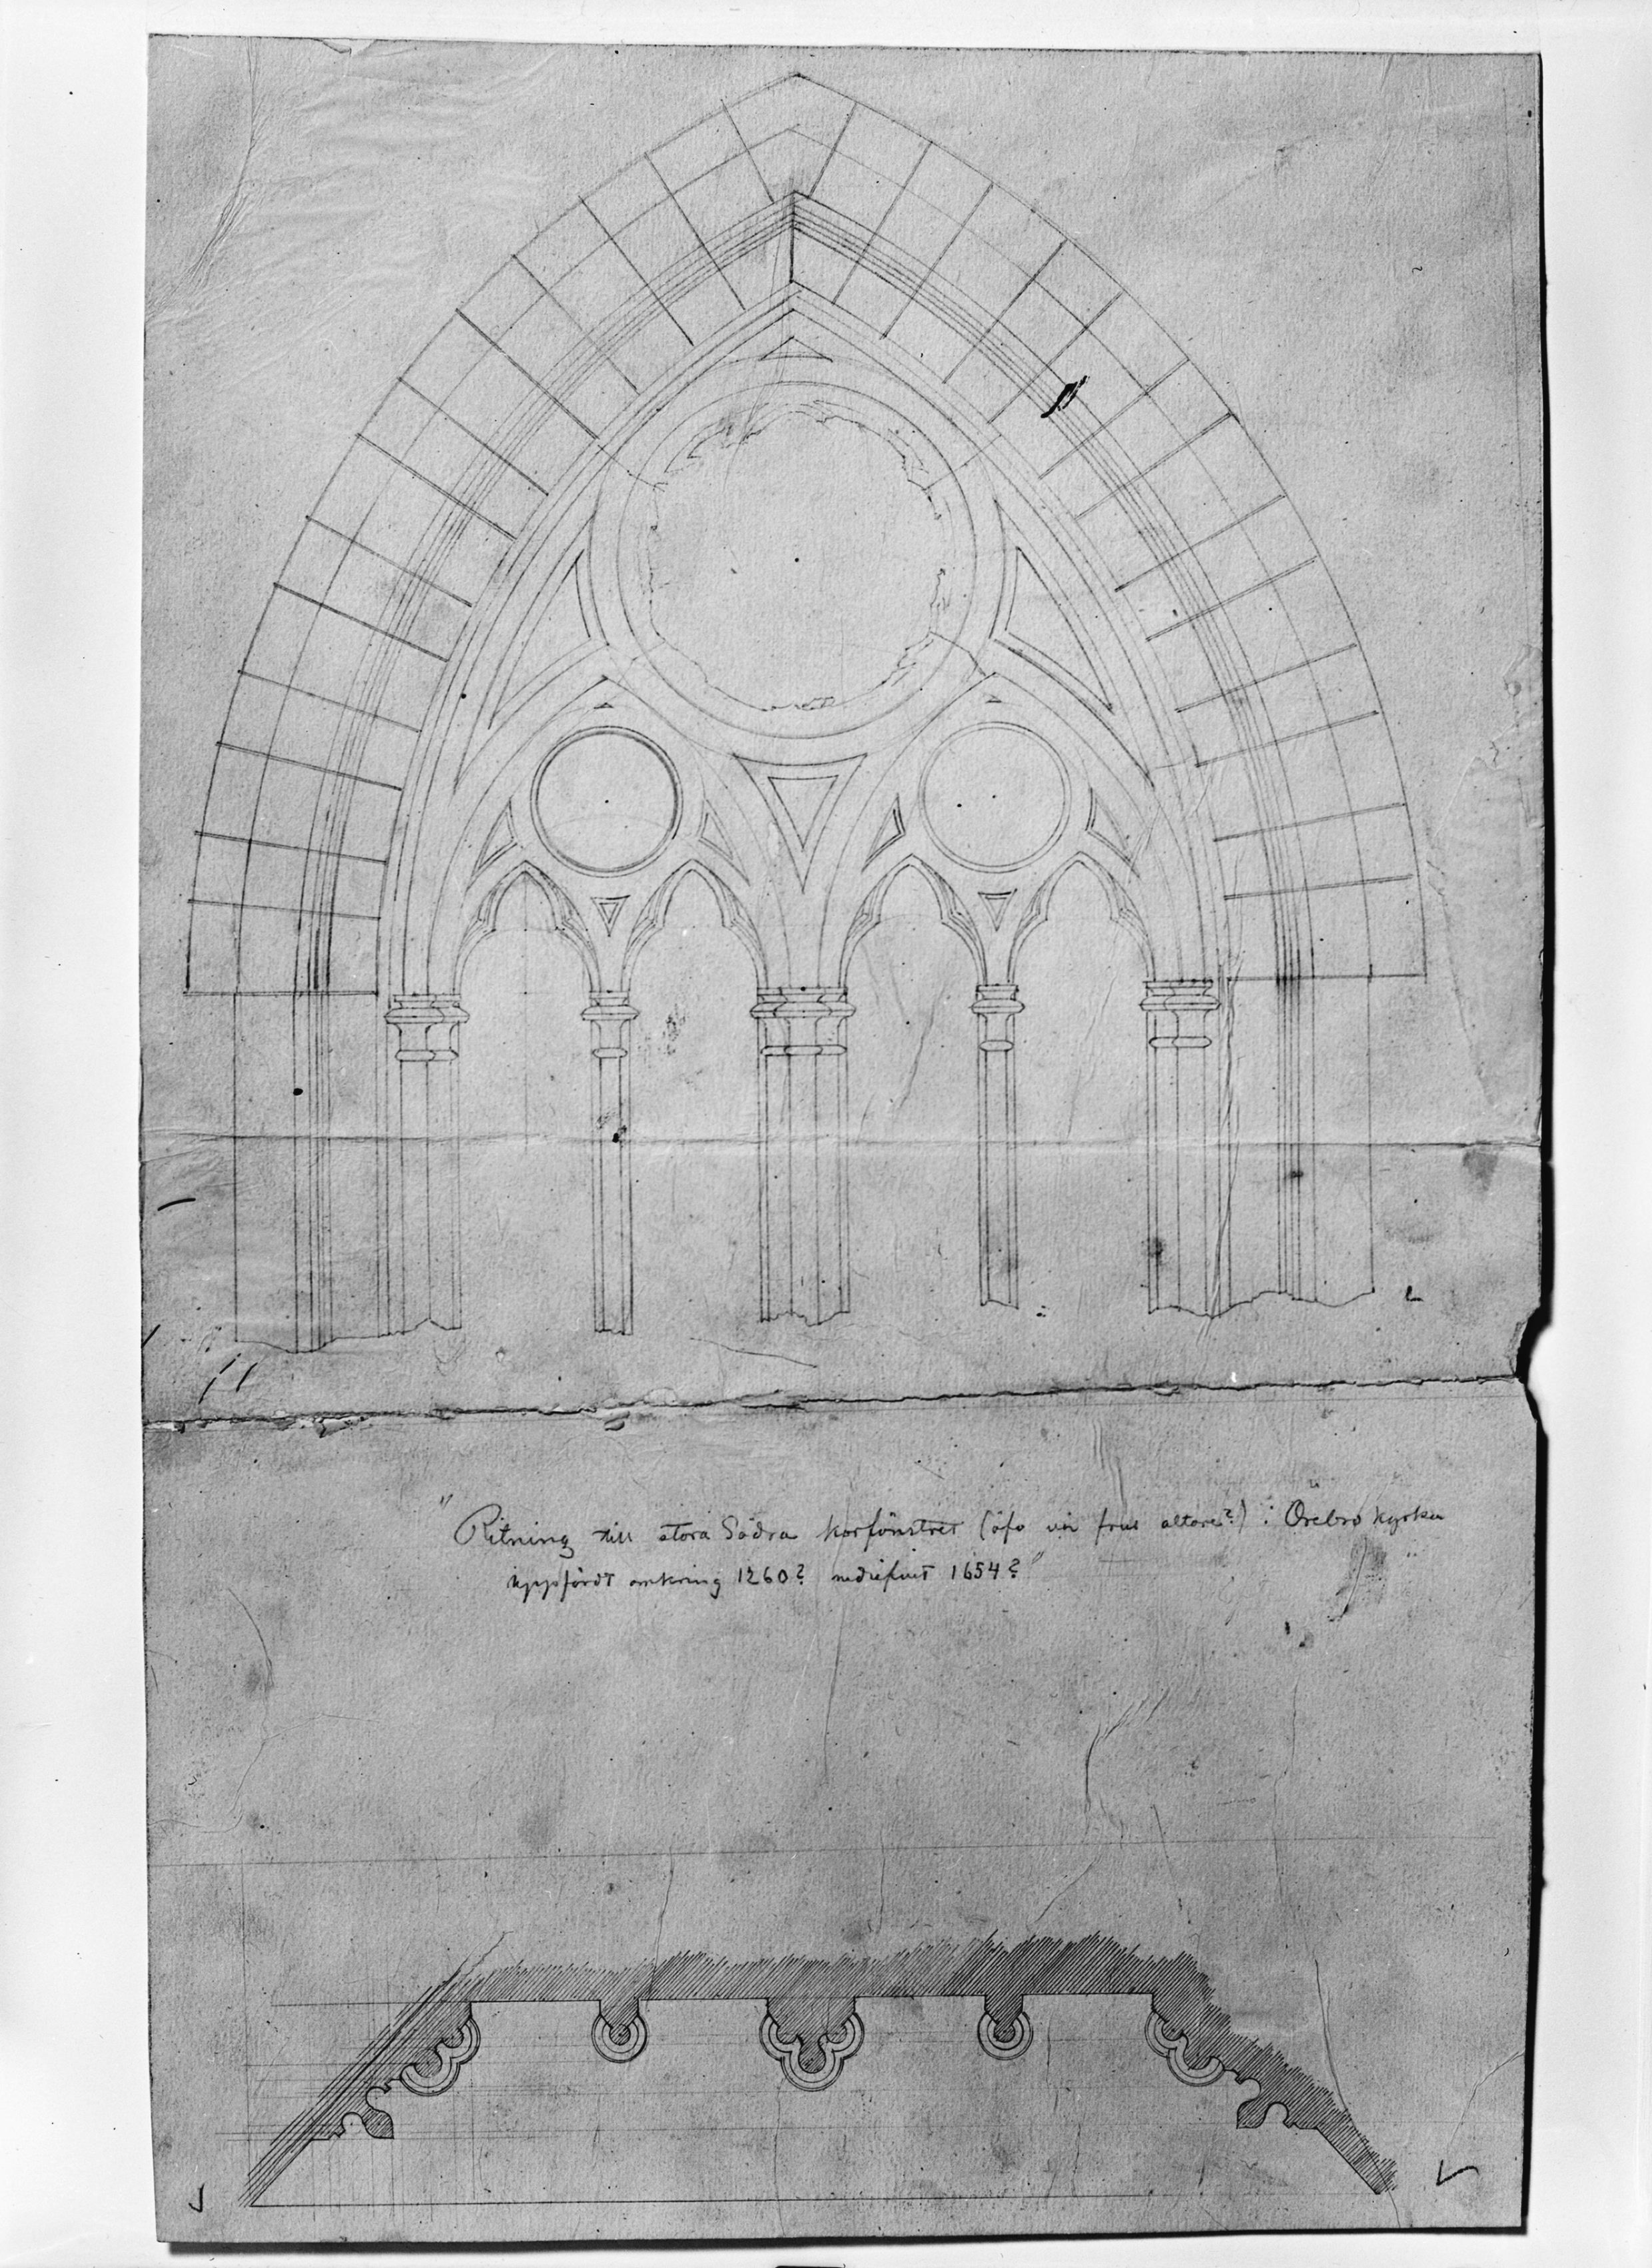 "Ritning till stora Södra korfönstret (öfv vår frus altare?) i Örebro kyrka
uppfördt omkring 1260? nedrifvit 1654?"